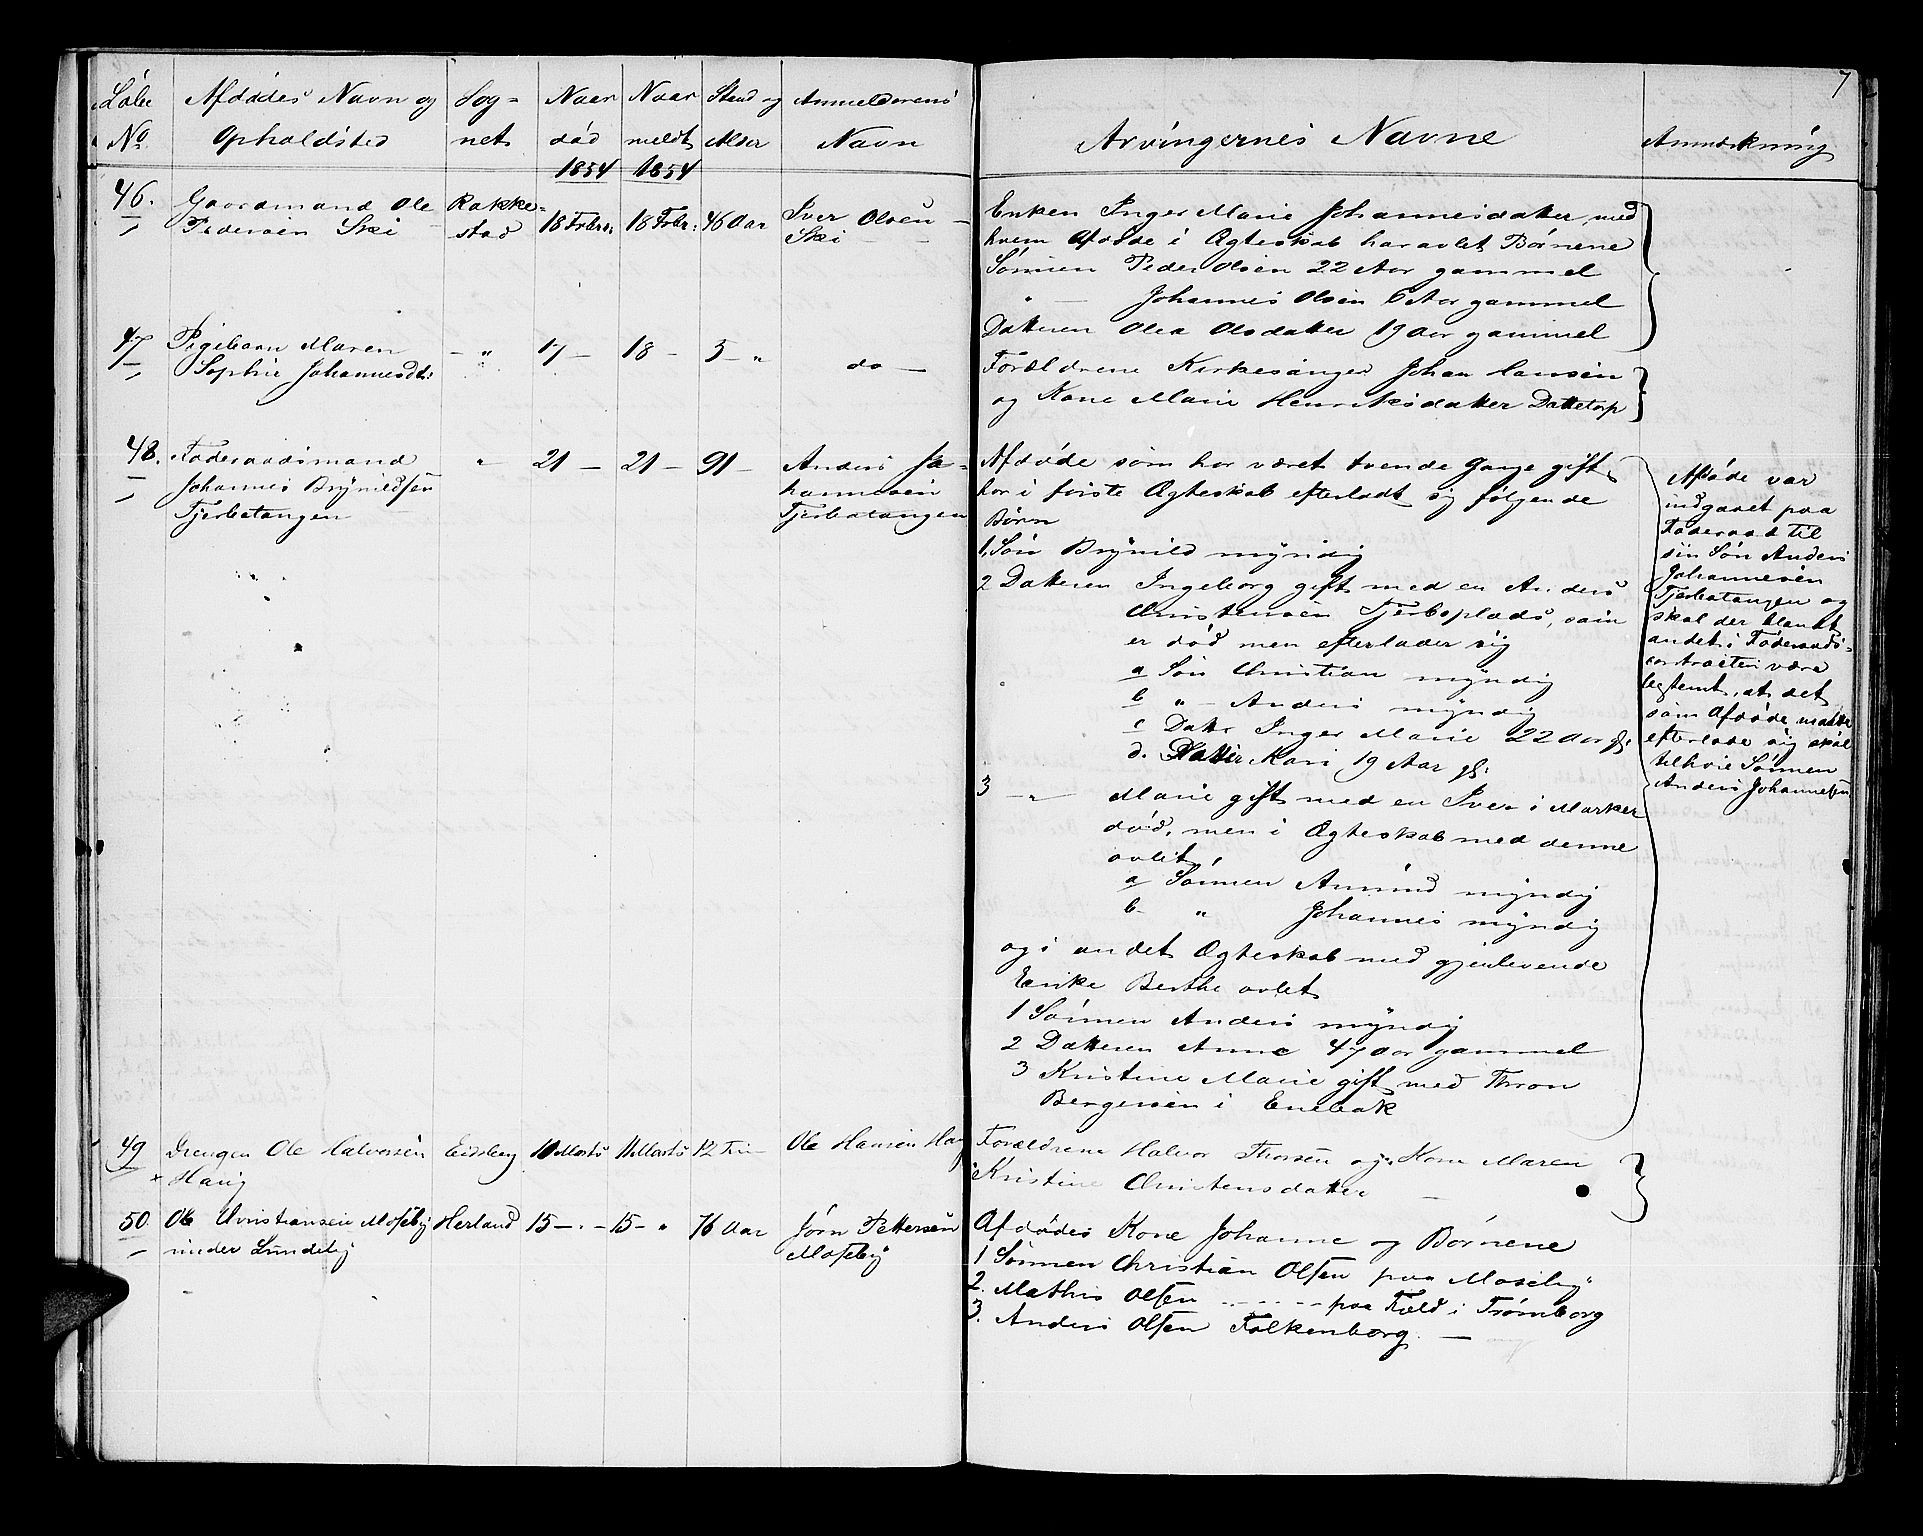 7
Løbe Afdødes Navn og Sog= Naar Naar Stand og Anmelderens
No Opholdsted net død meldt Alder Navn Arvingernes Navne Anmærkning
1854 1854
46. Gaardmand Ole Rakke= 18 Febr: 18 Febr: 46 Aar Iver Olsen
Pedersen Ski stad Ski
Enken Inger Marie Johannesdatter, med
hvem Afdøde i Ægteskab har avlet Børnene
Sønnen Peder Olsen 22 Aar gammel
" — Johannes Olsen 6 Aar gammel
Datteren Olea Olsdatter 19 Aar gammel
47 Pigebarn Maren — " 17 — 18 — 5 — " do —
Sophie Johannesdtr:
Forældrene Kirkesanger Johan Hansen
og Kone Marie Henriksdatter Dattetorp
48. Føderaadsmand " 21 — 21 — 91 — Anders Jo=
Johannes Brynildsen hannesen
Tjerbatangen Tjerbatangen
Afdøde som har været tvende Gange gift
har i første Ægteskab efterladt sig følgende
Børn
1. Søn Brynild myndig
2 Datteren Ingeborg gift med en Anders
Christensen Tjerboplads, som
er død men efterlader sig
a Søn Christian myndig
b " — Anders myndig
c Dattr Inger Marie 22 Aar gl:
d. Datter Kari 19 Aar gl:
3 — " Marie gift med en Iver i Marker
død, men i Ægteskab med denne
avlet
a Sønnen Amund myndig
b " Johannes myndig
og i andet Ægteskab med gjenlevende
Enke Berthe avlet
1 Sønnen Anders myndig
2 Datteren Anne 47 Aar gammel
3 Kristine Marie gift med Thron
Bergersen i Enebak
Afdøde var
indgaaet paa
Føderaad til
sin Søn Anders
Johannesen
Tjerbatangen og
skal der blandt
andet i Føderaads=
contracten være
bestemt, at det
som Afdøde maatte
efterlade sig skal
tilhøre Sønnen
Anders Johannesen
49 Drengen Ole Halvorsen Eidsberg 10 Marts 11 Marts 12 Ole Hansen Haug
x Haug
Forældrene Halvor Thorsen og Kone Maren
Kristine Christensdatter —
50. Ole Christiansen Moseby Herland 15 — " — 15 — " 76 Aar Jørn Pettersen
under Lundeby Moseby
Afdødes Kone Johanne og Børnene
1 Sønnen Christian Olsen paa Moseby
2. Mathis Olsen — " — paa Fæld i Trømborg
3. Anders Olsen Falkenborg. —